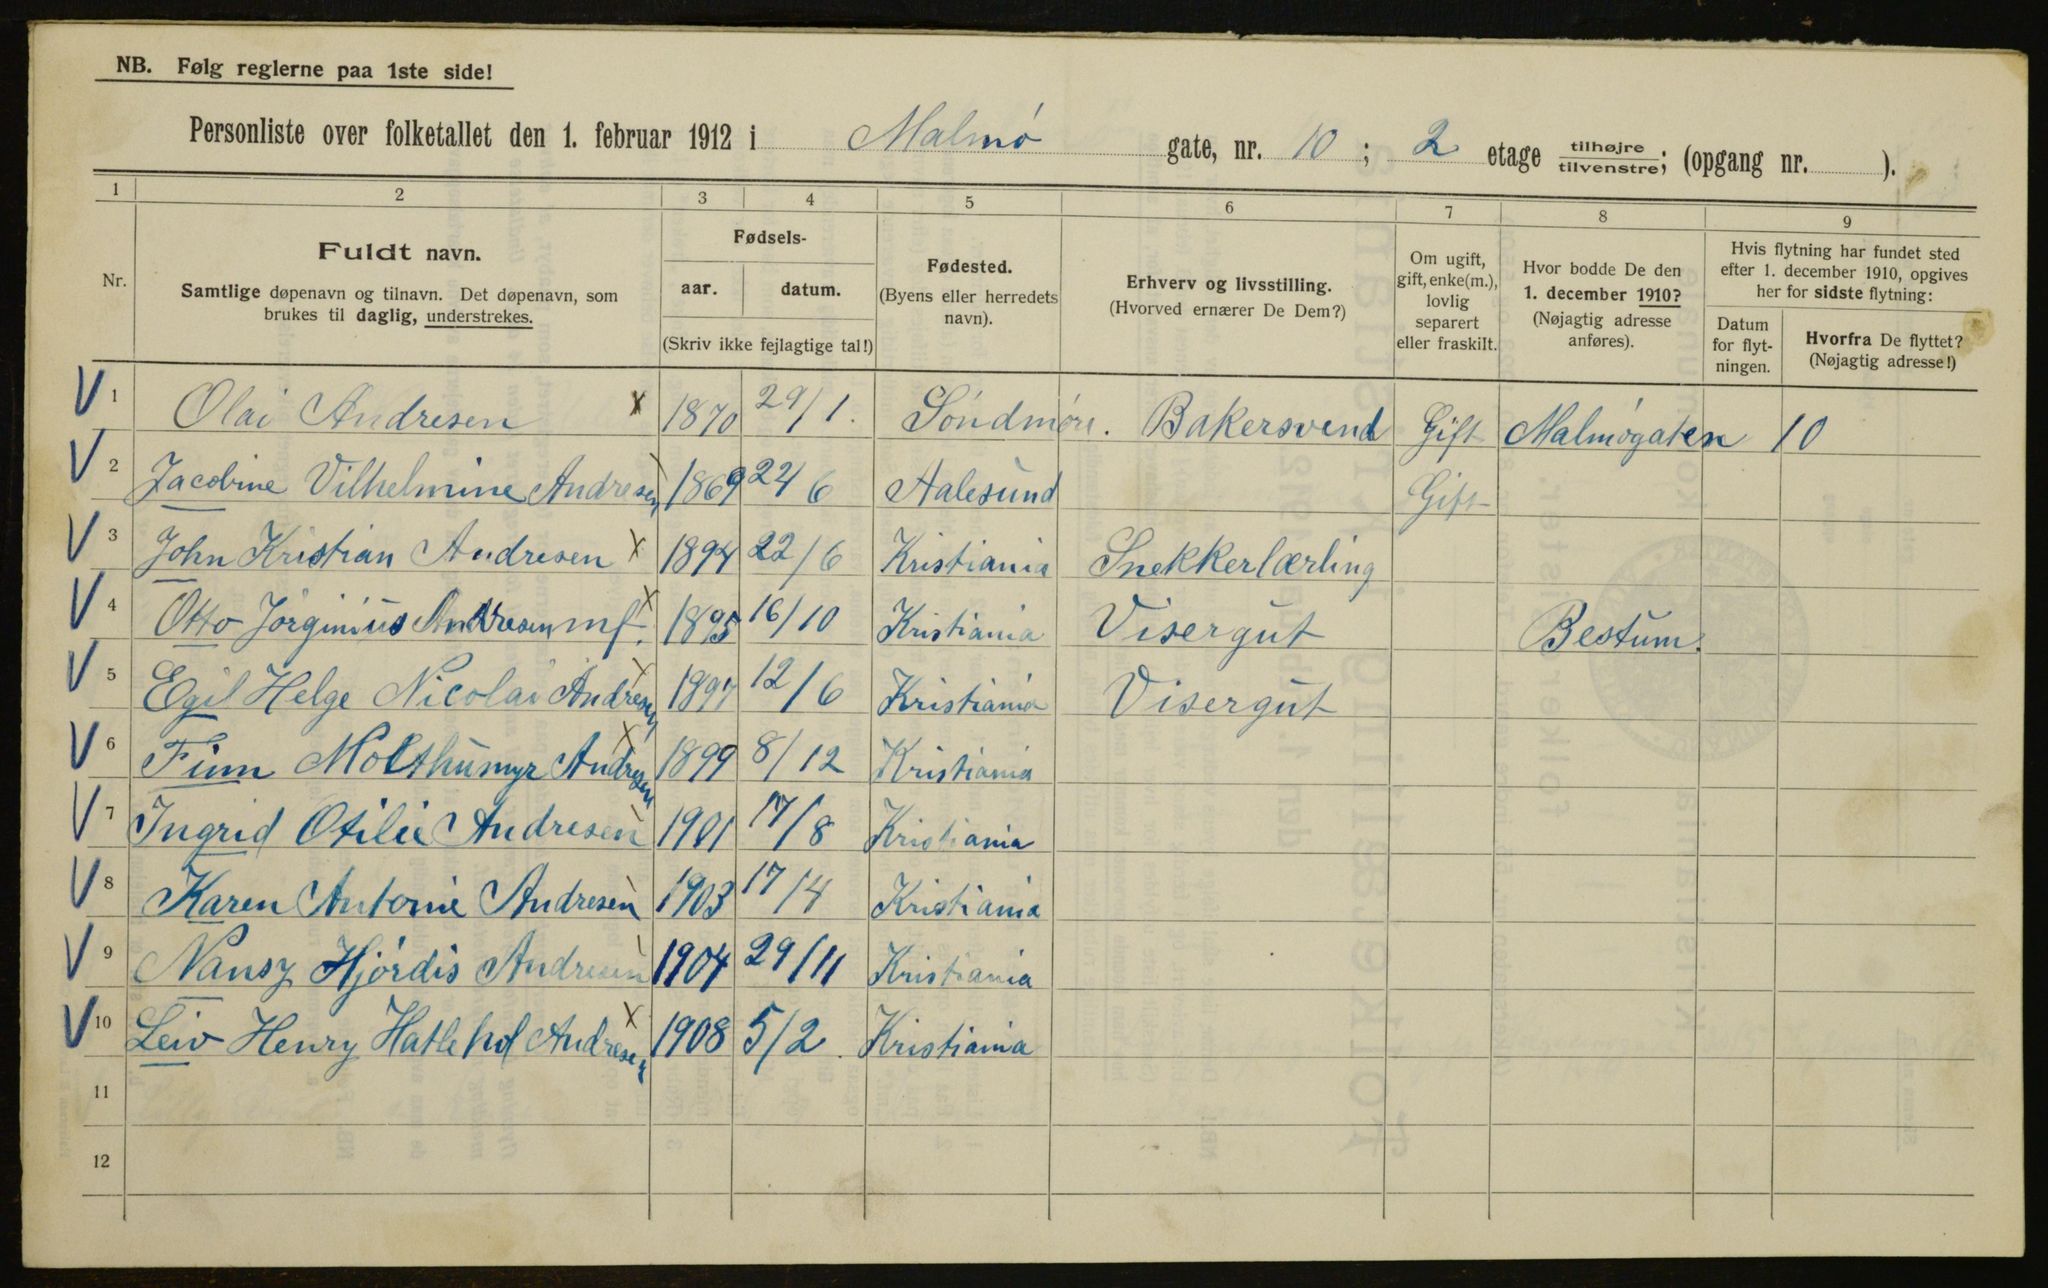 NB. Følg reglerne paa 1ste side!
Personliste over folketallet den 1. februar 1912 i Malmø gate, nr. 10; 2 etage tilhøjre/tilvenstre; (opgang nr. ).
1 2 3 4 5 6 7 8 9
Nr.
Fuldt navn.
Samtlige døpenavn og tilnavn. Det døpenavn, som
brukes til daglig, understrekes.
Fødsels-
aar. datum.
(Skriv ikke fejlagtige tal!)
Fødested.
(Byens eller herredets
navn).
Erhverv og livsstilling.
(Hvorved ernærer De Dem?)
Om ugift,
gift, enke(m.),
lovlig
separert
eller fraskilt.
Hvor bodde De den
1. december 1910?
(Nøjagtig adresse
anføres).
Hvis flytning har fundet sted
efter 1. december 1910, opgives
her for sidste flytning:
Datum
for flyt-
ningen.
Hvorfra De flyttet?
(Nøjagtig adresse!)
V 1 Olai Andresen x 1870 29/1. Söndmöre. Bakersvend Gift Malmögaten 10
V 2 Jacobine Vilhelmine Andresen 1869 22/6 Aalesund Gift
V 3 John Kristian Andresen x 1894 22/6 Kristiania Snekkerlærling
V 4 Otto Jörginius Andresen mf. x 1895 16/10 Kristiania Visergut Bestum.
V 5 Egil Helge Nicolai Andresen x 1897 12/6 Kristiania Visergut
V 6 Finn Andresen x 1899 8/12 Kristiania
V 7 Ingrid Otilie Andresen 1901 17/8 Kristiania
V 8 Karen Antonie Andresen 1903 17/4 Kristiania
V 9 Nansy Hjördis Andresen 1904 29/11 Kristiania
V 10 Leiv Henry Hatlehol Andresen x 1908 5/2. Kristiania
11
12